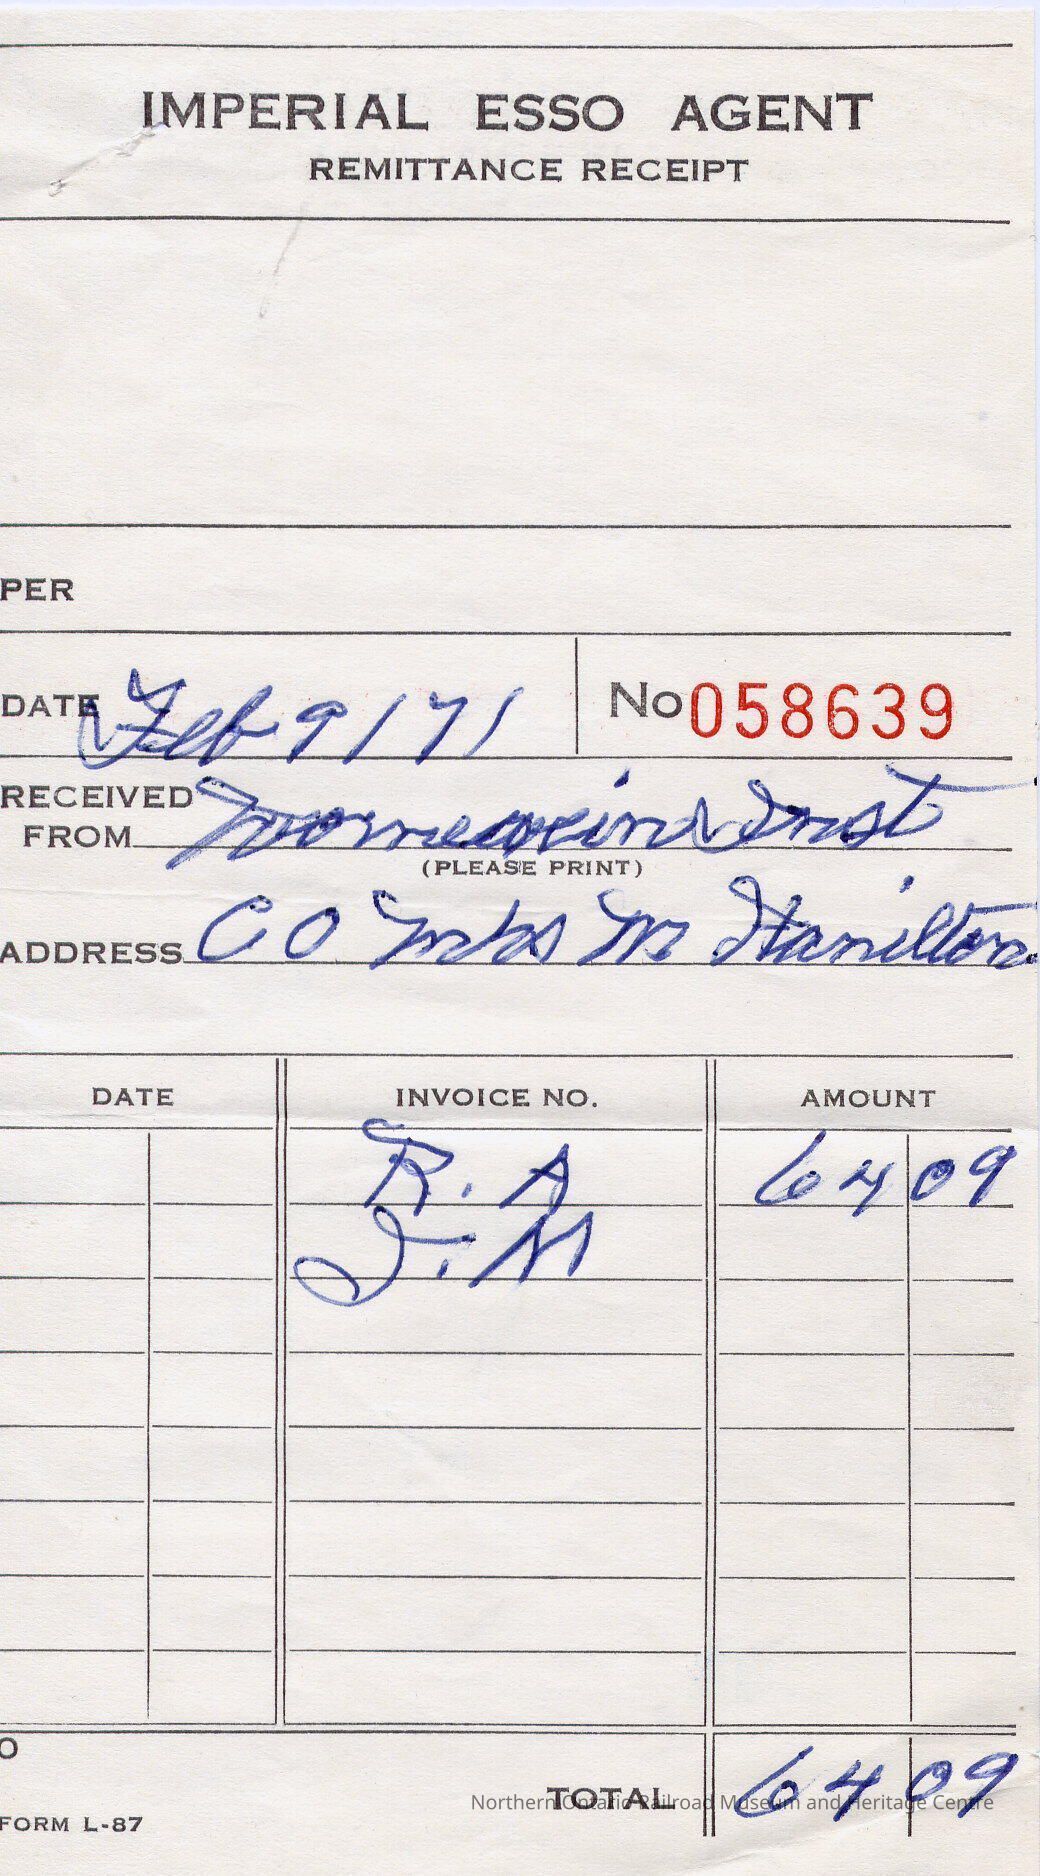 IMPERIAL ESSO AGENT
REMITTANCE RECEIPT
PER
DATE Feb 9/71
No 058639
RECEIVED FROM Inst
(PLEASE PRINT)
ADDRESS CO Mrs M Hamilton
DATE INVOICE NO. AMOUNT
R. A 64 09
J. M
O
TOTAL 64 09
Northern Ontario Railroad Museum and Heritage Centre
FORM L-87